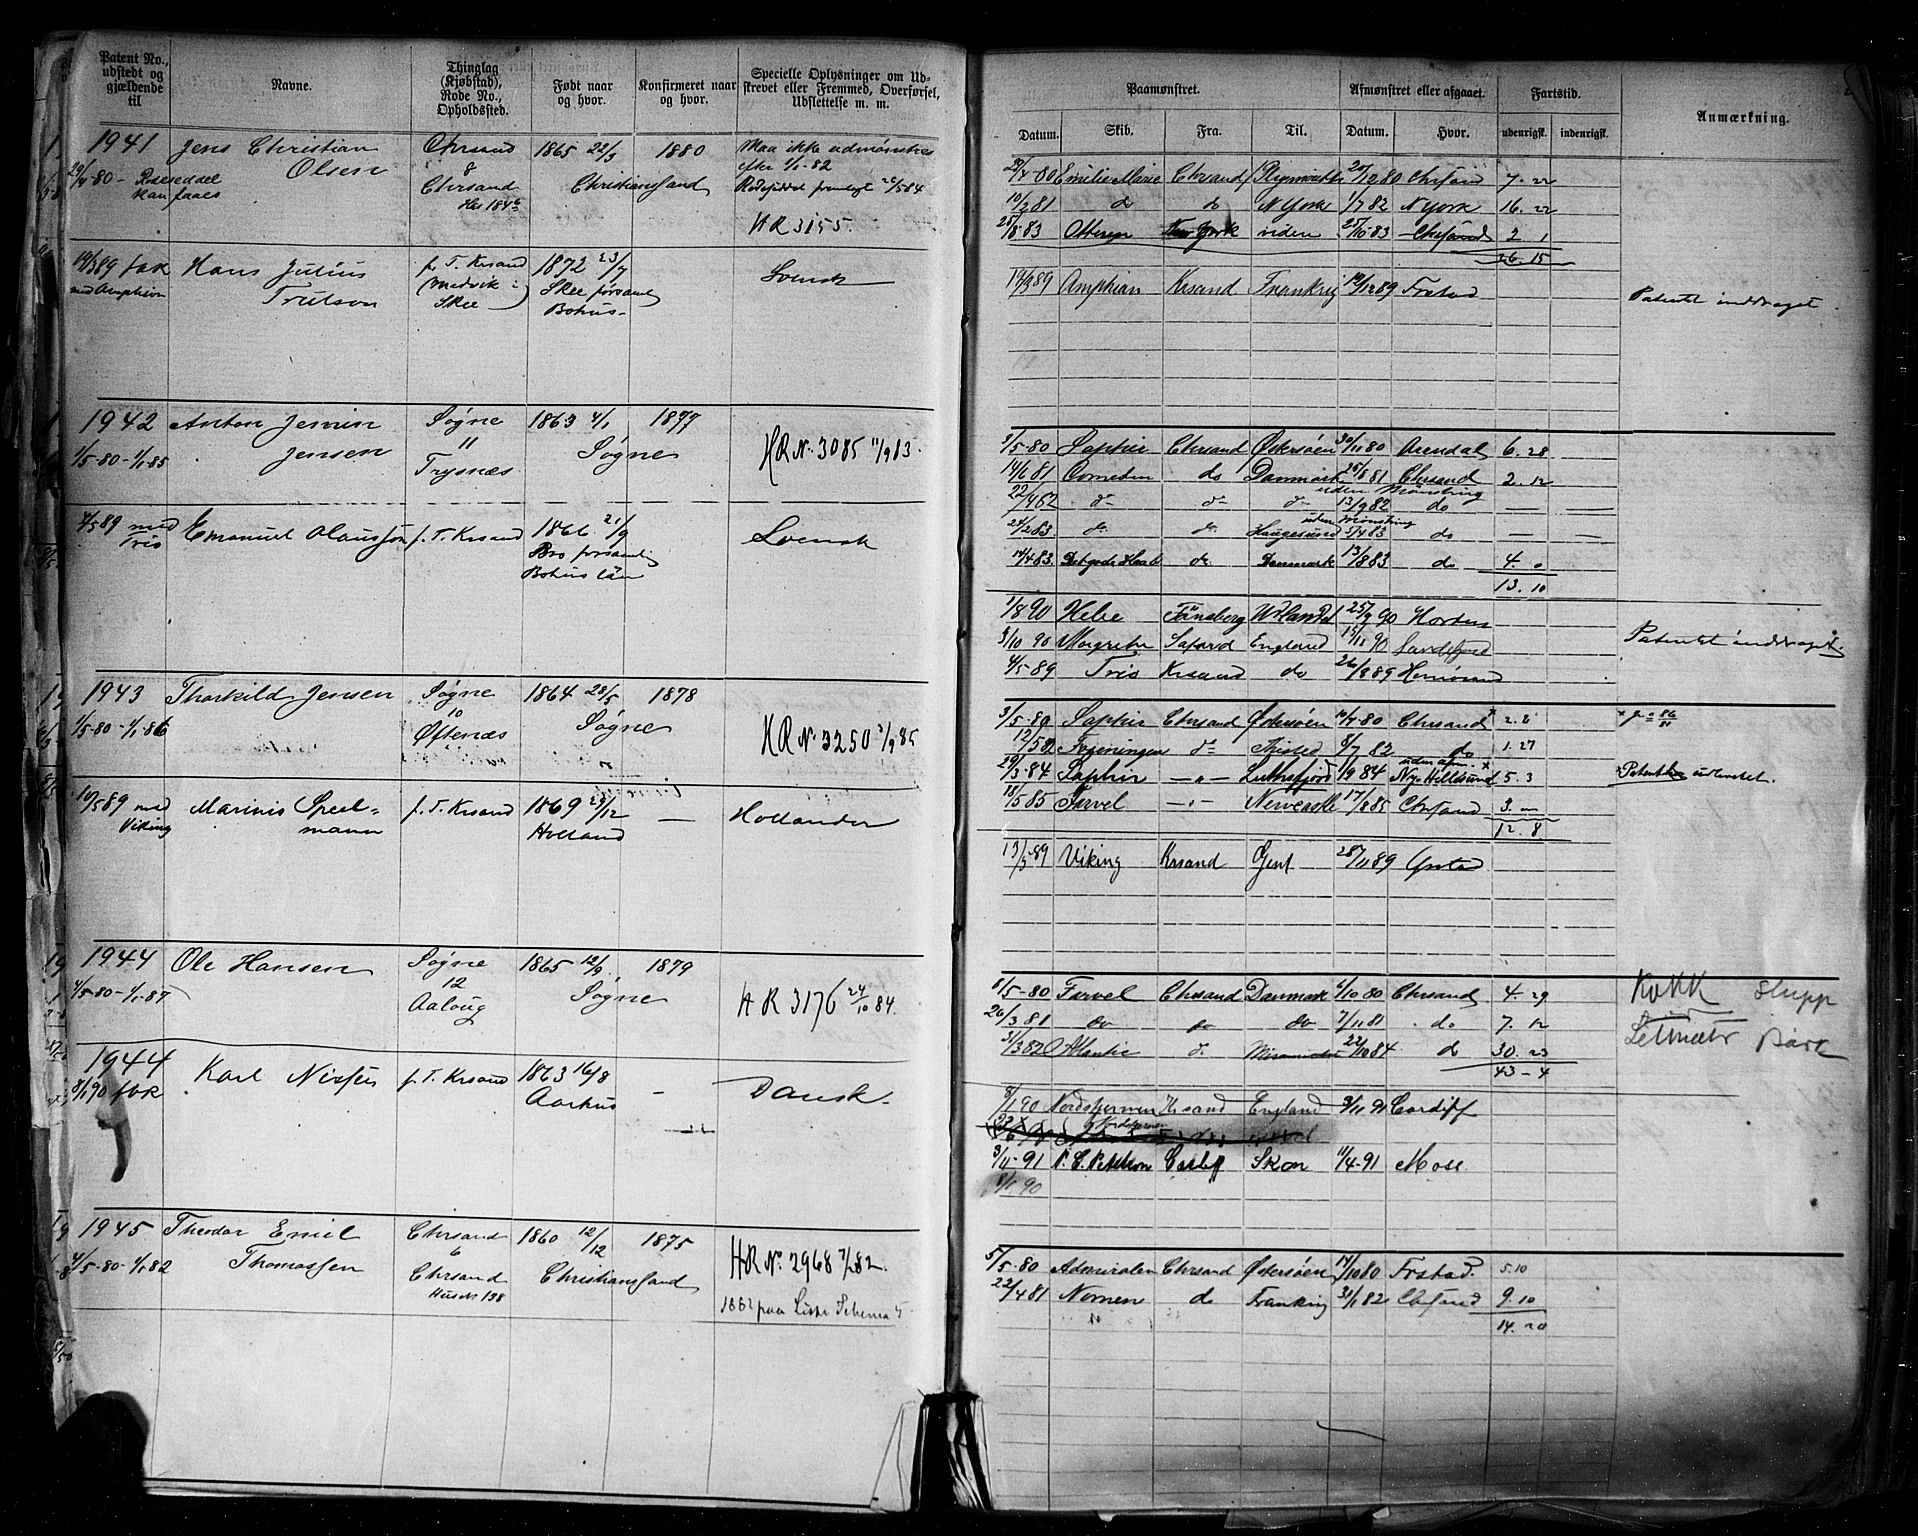 Patent No., udstedt og gjældende til
Navne.
Thinglag (Kjøbstad), Rode No., Opholdssted.
Født naar og hvor.
Konfirmeret naar og hvor.
Specielle Oplysninger om Udskrevet eller Fremmed, Overførsel, Udslettelse m. m.
1941 Jens Christian Chrsand 1865 22/3 1880 Maa ikke udmønstres
Olsen 8 efter 1/1-82
29/4-80 - Rodeseddel Chrsand Christianssand
Hus 184b
HR 3155.
14/3 89 fok Hans Julius f. T. Krsand 1872 23/7 Svensk
med Amphion Trulson Skee forsaml
Skee Bohus-
1942 Anton Jensen Søgne 1863 4/1 1877
Jensen 11 Søgne HR No. 3085 11/9 83.
1/5-80-1/1-85 Trysnæs
4/5 89 med Emanuel Olausson f. T. Krsand 1866 21/9 Svensk
Tris Bro forsamli
Bohus län
1943 Thorkild Jensen Søgne 1864 28/5 1878
1/5-80-1/1-86 10 Søgne HR No. 3250 2/9-85
Øftenæs
10/5 89 med Marinis Speel- f. T. Krsand 1869 23/12 — Hollander
Viking mann Holland
1944 Ole Hansen Søgne 1865 12/9 1879
4/5-80-1/1-87 12 Søgne HR 3176 24/10 84.
Aaloug
1944 Karl Nissen f. T. Krsand 1863 16/8 - Dansk.
8/1 90 fok Aarhus
1945 Theodor Emil Chrsand 1860 12/12 1875
4/5-80-1/1-82 Thomassen 6 Christianssand HR No. 2968 7/2 82.
Chrsand
Hus No 138 1882 paa Liste Schema
Paamønstret.
Afmønstret eller afgaaet.
Fartstid.
Anmærkning.
Datum. Skib. Fra. Til. Datum. Hvor. udenrigsk. indenrigsk.
29/4-80 Emilie Marie Chrsand Plymouth 20/12 80 Chrsand 7. 22
10/2 81 do do NYork 1/7 82 NYork 16. 22
25/8-83 Otteren New York uden 25/10-83 Chrsand 2 1
26. 15
14/3 89 Amphion Krsand Frankrig 10/12 89 Frstad Patentet inddraget.
3/5-80 Saphir Chrsand Østersøen 30/11 80 Arendal 6. 28
14/6 81 do Danmark 25/8 81 Chrsand 2. 12
uden Mønstring
13/9 82 do — —
uden Mønstring
24/2 83 do do Haugesund 5/4 83 do — —
14/4 83 Det gode Haab do Danmark 13/8 83 do 4. 0
13. 10
1/8 90 Hebe Tønsberg 25/9 90 Horten
3/10 90 Margrethe England 15/11 90 Sandefjord Patentet inddraget.
4/5 89 Tris Krsand do 26/8 89 Hernösand
3/5-80 Saphir Chrsand Østersøen 10/7-80 Chrsand x 2. 8
12/5 82 Foreningen do Thisted 8/7 82 do 1. 27
29/3-84 Saphir —"— 1/9 84 Ny Hellesund 5. 3
18/5 85 Farvel —"— Newcastle 17/8 85 Chrsand 3. "
12. 8
13/5-89 Viking Krsand Gent 28/11 89
6/5-80 Farvel Chrsand Danmark 6/10 80 Chrsand 4. 29 Kokk Slupp
26/3 81 do do do 7/11 81 do 7. 12
31/3 82 Atlantic do 22/10 84 do 30. 23 Letmatr Bark
43 - 4
8/1 90 Nordstjernen Krsand England 3/11 91 Cardiff
3/11-91 P. C. Petersen Cardiff 11/4-91 Moss
8/1 90
5/5-80 Admiralen Chrsand Østersøen 14/10 80 Frstad. 5. 10
22/4 81 Nornen do Frankrig 31/1 82 Chrsand 9. 10
14. 20